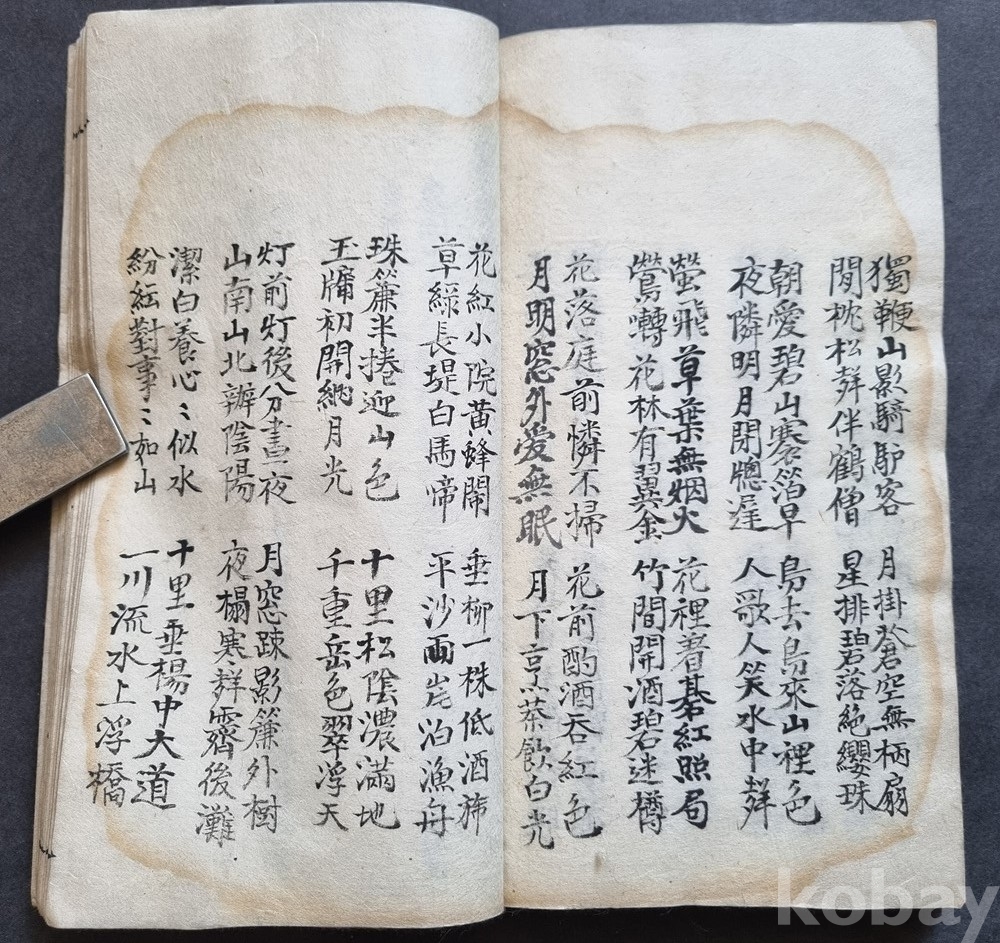 獨鞭山影騎馿客 月掛蒼空無柄扇
閒枕松聲伴鶴僧 星排碧落絶纓珠
朝愛碧山褰箔早 鳥去鳥來山裡色
夜隣明月閉牕遅 人歌人笑水中聲
螢飛草葉無烟火 花裡着碁紅照局
鶯囀花林有翼金 竹間開酒碧迷樽
花落庭前憐不掃 花前酌酒呑紅色
月明窓外愛無眠 月下烹茶飮白光
花紅小院黃蜂鬧 垂柳一株低酒斾
草綠長堤白馬啼 平沙兩岸泊漁舟
珠簾半捲迎山色 十里松陰濃滿地
玉牖初開納月光 千重岳色翠浮天
灯前灯後分晝夜 月窓踈影簾外樹
山南山北辨陰陽 夜榻寒聲霽後灘
潔白養心〻似水 十里垂楊中大道
紛紜對事〻如山 一川流水上浮橋
kobay